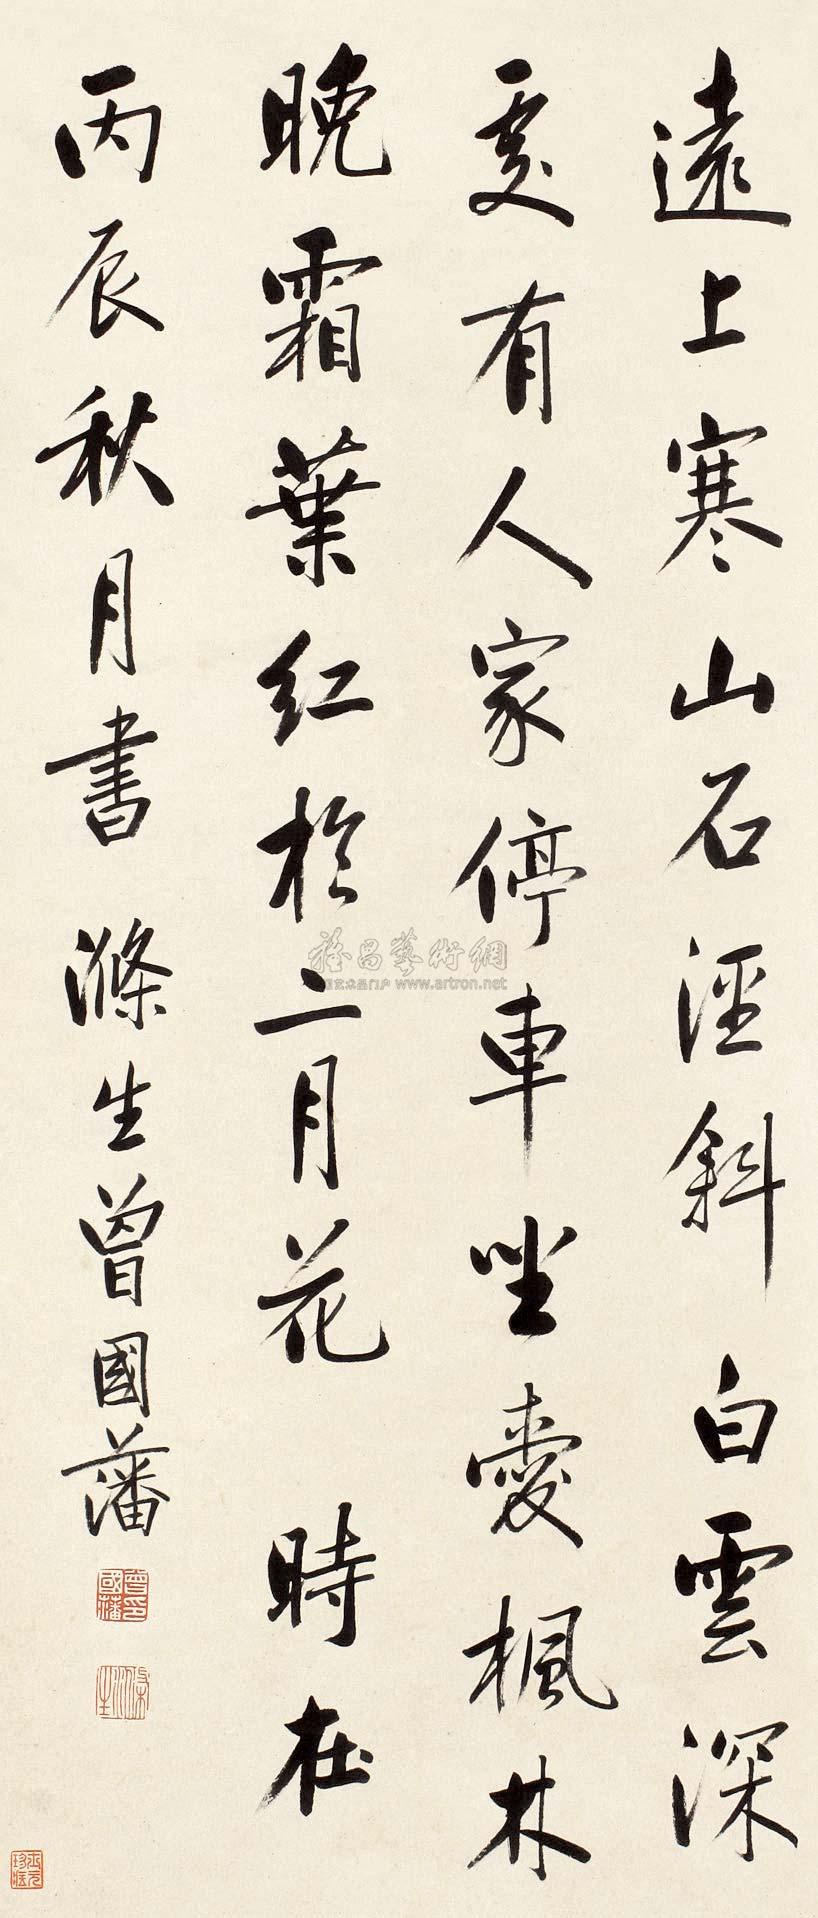 遠上寒山石涇斜白雲深
處有人家停車坐愛楓林
晚霜葉紅於二月花時在
丙辰秋月書滌生曾國藩
曾國藩印
滌生
雅昌藝術網
www.artron.net